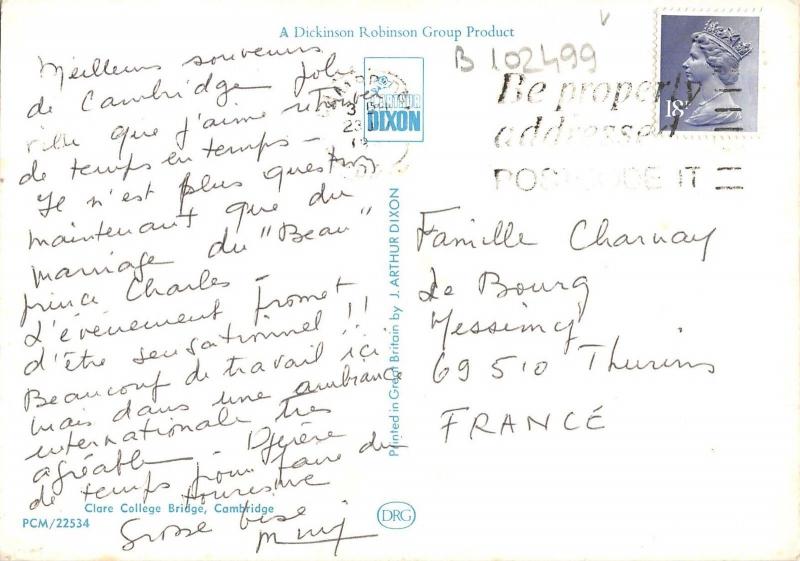 A Dickinson Robinson Group Product
B 102499
Be properly
addressed
POSTCODE IT
18
ARTHUR
DIXON
Meilleurs souvenirs
de Cambridge jolie
ville que j'aime retrouver
de temps en temps -
Je n'est plus question
maintenant que du
mariage du "Beau"
prince Charles -
L'évènement promet
d'être sensationnel !!
Beaucoup de travail ici
mais dans une ambiance
internationale très
agréable -
de temps pour faire du
tourisme
Grosse bise
Famille Charnay
Le Bourg
Messimy
69510 Thurins
FRANCE
Printed in Great Britain by J. ARTHUR DIXON
Clare College Bridge, Cambridge
PCM/22534
DRG